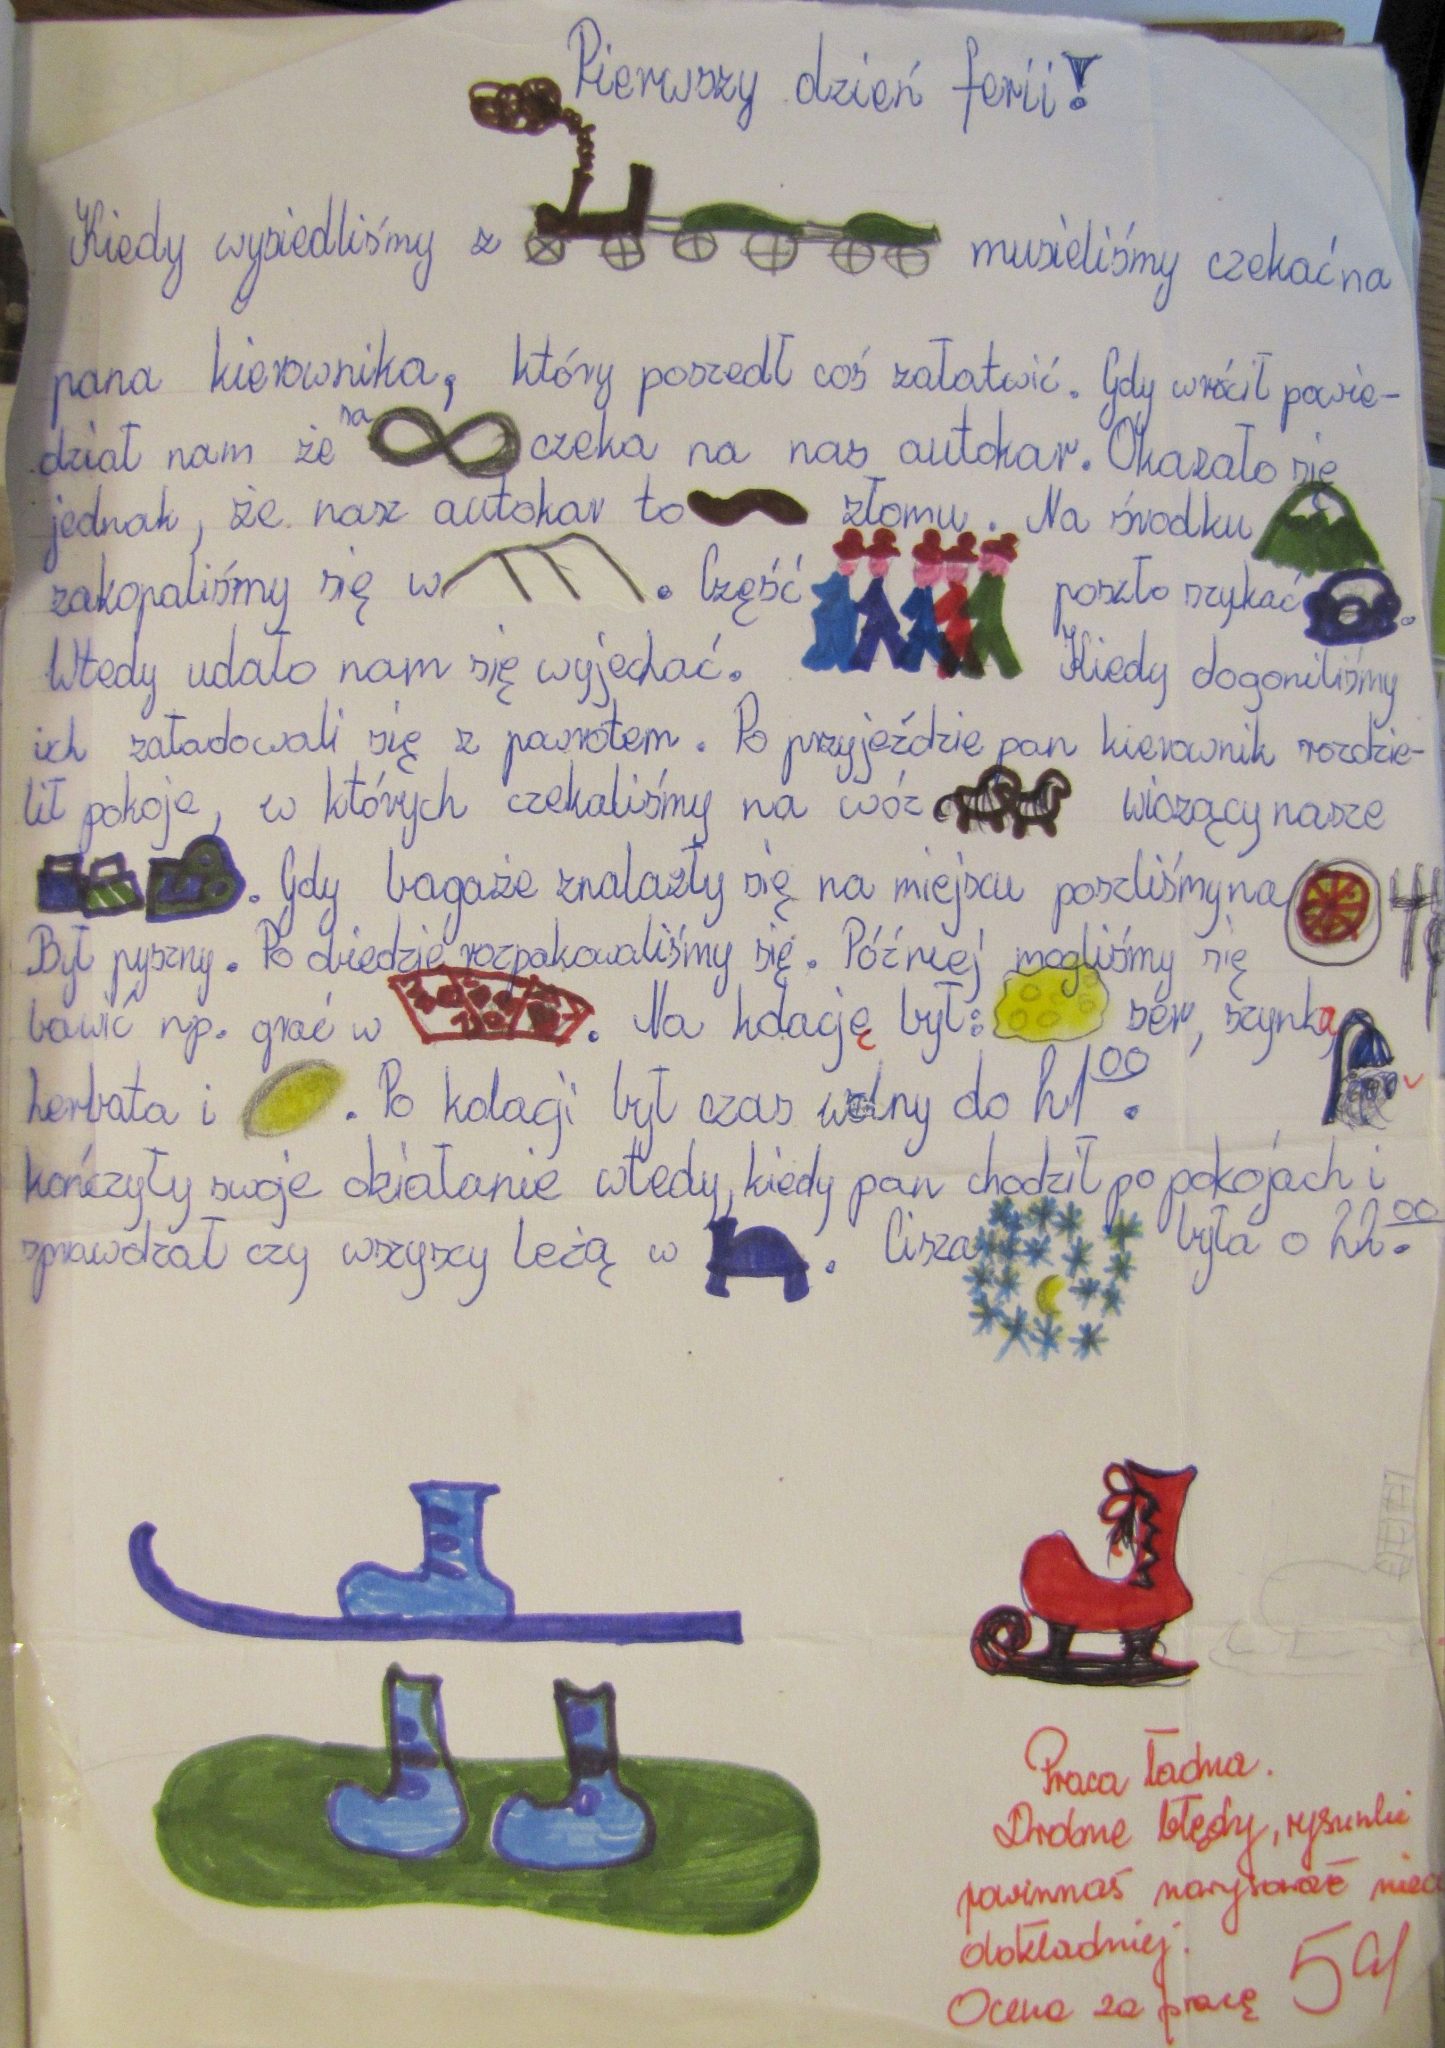 Pierwszy dzień ferii!
Kiedy wysiedliśmy z musieliśmy czekać na
pana kierownika, który poszedł coś załatwić. Gdy wrócił powie-
dział nam że za czeka na nas autokar. Okazało się
jednak, że nasz autokar to złomu. Na środku
zakopaliśmy się w . Część poszło szukać .
Wtedy udało nam się wyjechać. Kiedy dogoniliśmy
ich załadowali się z pawrotem. Po przyjeździe pan kierownik rozdzie-
lił pokoje, w których czekaliśmy na wóz wiozący nasze
. Gdy bagaże znalazły się na miejscu poszliśmy na
Był pyszny. Po obiedzie rozpakowaliśmy się. Później mogliśmy się
bawić np. grać w . Na kolację był: ser, szynka
herbata i . Po kolagi był czas wolny do 21 00.
kończyły swoje działanie wtedy, kiedy pan chodził po pokojach i
sprawdzał czy wszyscy leżą w . Cisza była o 22 00.
Praca ładna.
Drobne błędy, rysunki
powinnaś narysować
dokładniej.
Ocena za pracę 5